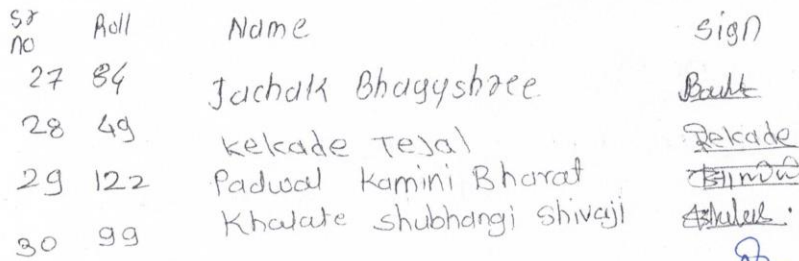 Sr no Roll Name Sign
27 84 Jachak Bhagyshree
28 49 Kekade Tejal Rekade
29 122 Padwal Kamini Bharat
30 99 Khalate Shubhangi Shivaji